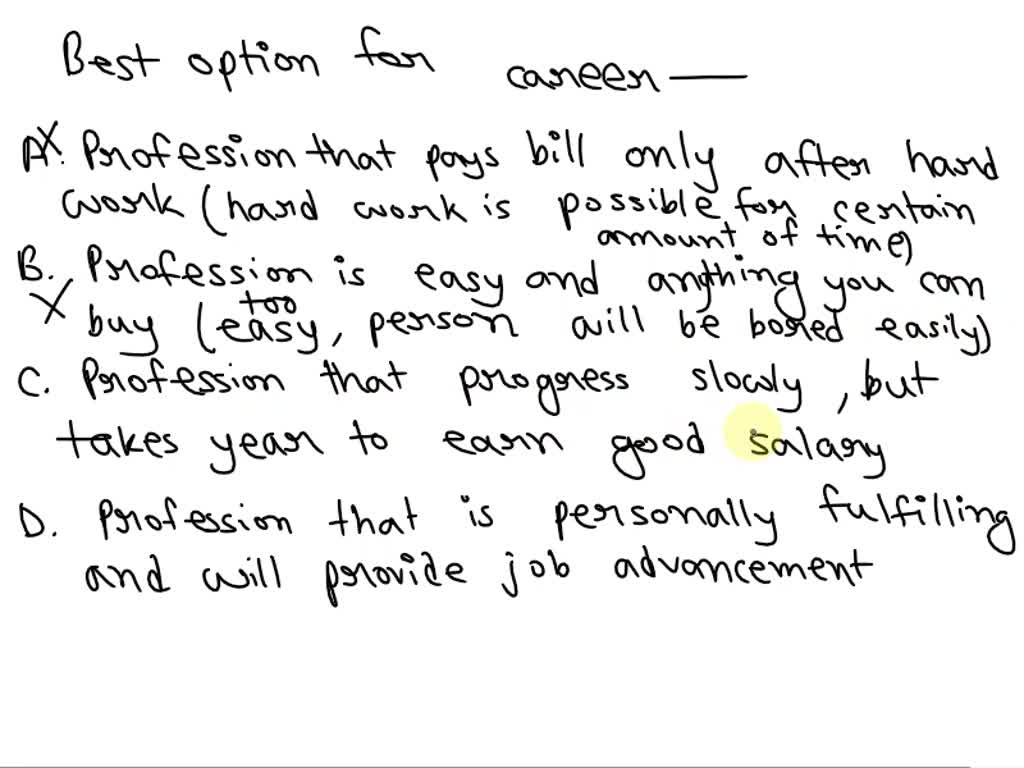 Best option for career —
A. X Profession that pays bill only after hard
work (hard work is possible for certain
amount of time)
B. Profession is easy and anything you can
X buy (too easy, person will be bored easily)
C. Profession that progress slowly, but
takes year to earn good salary
D. Profession that is personally fulfilling
and will provide job advancement